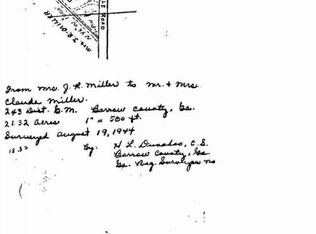 Mrs. J. R. Miller
Road
From Mrs. J. R. Miller to Mr. & Mrs.
Claude Miller.
243 Dist. G.M. Barrow County, Ga.
21.32 Acres 1" = 500 ft.
Surveyed August 19, 1944
By: H L. Dunahoo, C.S.
Barrow County, Ga
Ga. Reg. Surveyor No